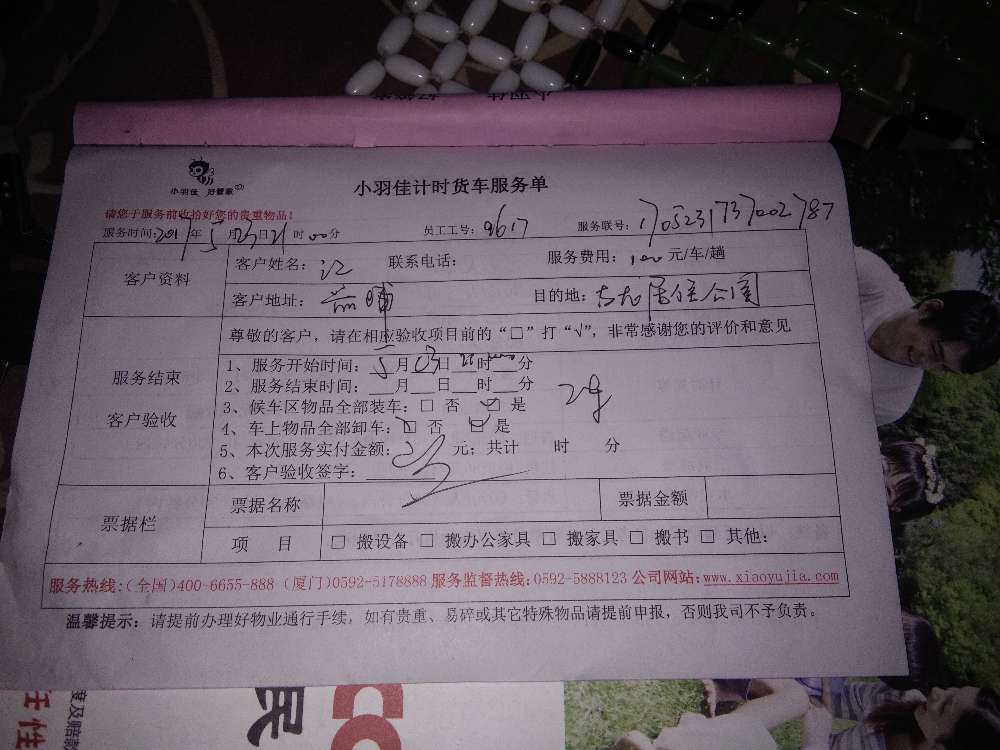 小羽佳 好管家
小羽佳计时货车服务单
请您于服务前收拾好您的贵重物品!
服务时间: 2017年5月23日21时00分 员工工号: 9617 服务联号: 1705231737002787
客户资料
客户姓名: 江 联系电话: 服务费用: 100元/车/趟
客户地址: 目的地:
尊敬的客户，请在相应验收项目前的“□”打“√”，非常感谢您的评价和意见
服务结束
客户验收
1、服务开始时间: 5月23日21时 分
2、服务结束时间: 月 日 时 分
3、候车区物品全部装车: □ 否 ☑ 是
4、车上物品全部卸车: □ 否 ☑ 是
5、本次服务实付金额: 元; 共计 时 分
6、客户验收签字:
票据栏
票据名称 票据金额
项 目 □ 搬设备 □ 搬办公家具 □ 搬家具 □ 搬书 □ 其他:
服务热线:(全国)400-6655-888 (厦门)0592-5178888 服务监督热线:0592-5888123 公司网站:www.xiaoyujia.com
温馨提示: 请提前办理好物业通行手续，如有贵重、易碎或其它特殊物品请提前申报，否则我司不予负责。